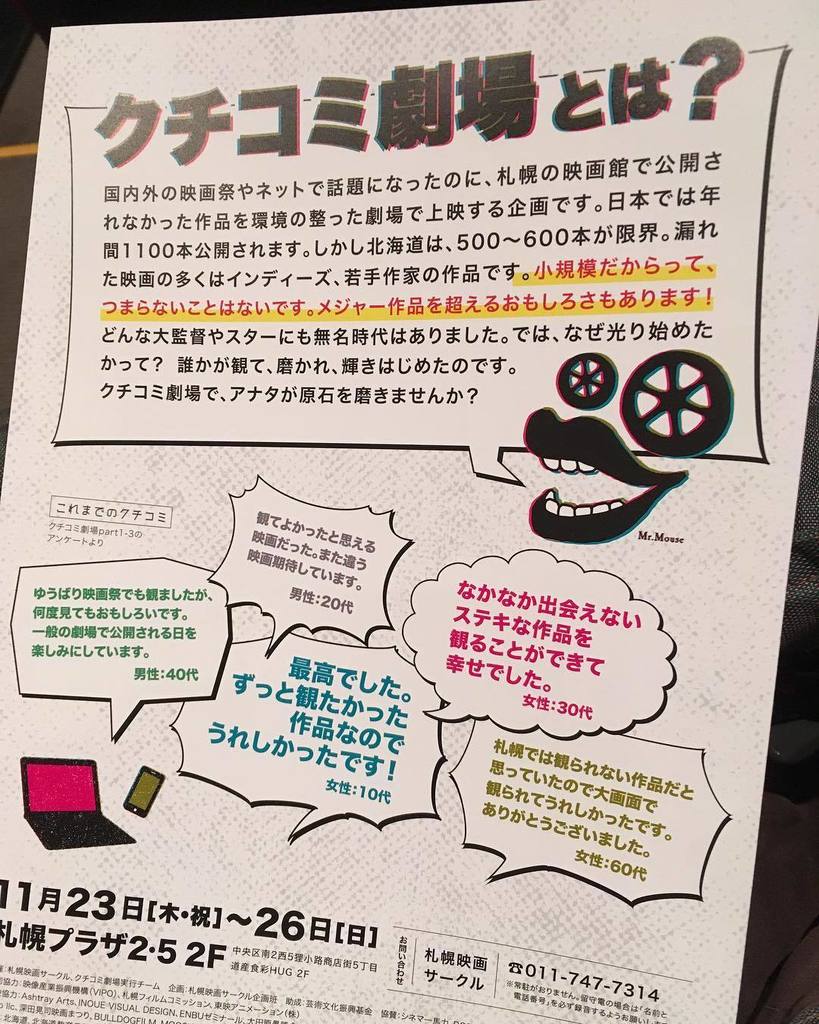 クチコミ劇場とは?
国内外の映画祭やネットで話題になったのに、札幌の映画館で公開さ
れなかった作品を環境の整った劇場で上映する企画です。日本では年
間1100本公開されます。しかし北海道は、500〜600本が限界。漏れ
た映画の多くはインディーズ、若手作家の作品です。小規模だからって、
つまらないことはないです。メジャー作品を超えるおもしろさもあります!
どんな大監督やスターにも無名時代はありました。では、なぜ光り始めた
かって? 誰かが観て、磨かれ、輝きはじめたのです。
クチコミ劇場で、アナタが原石を磨きませんか?
Mr.Mouse
これまでのクチコミ
クチコミ劇場part1-3の
アンケートより
観てよかったと思える
映画だった。また違う
映画期待しています。
男性:20代
ゆうばり映画祭でも観ましたが、
何度見てもおもしろいです。
一般の劇場で公開される日を
楽しみにしています。
男性:40代
なかなか出会えない
ステキな作品を
観ることができて
幸せでした。
女性:30代
最高でした。
ずっと観たかった
作品なので
うれしかったです!
女性:10代
札幌では観られない作品だと
思っていたので大画面で
観られてうれしかったです。
ありがとうございました。
女性:60代
11月23日[木・祝]〜26日[日]
札幌プラザ2・5 2F
中央区南2西5狸小路商店街5丁目
道産食彩HUG 2F
お問い合わせ
札幌映画
サークル
☎011-747-7314
※常駐がおりません。留守電の場合は「名前と
電話番号」を必ず録音するようお願い
札幌映画サークル、クチコミ劇場実行チーム 企画:札幌映画サークル企画班 助成:芸術文化振興基金 協賛:シネマー馬力
協力:映像産業振興機構(VIPO)、札幌フィルムコミッション、東映アニメーション(株)
協力:Ashtray Arts、INOUE VISUAL DESIGN、ENBUゼミナール
深田晃司映画まつり、BULLDOGFILM